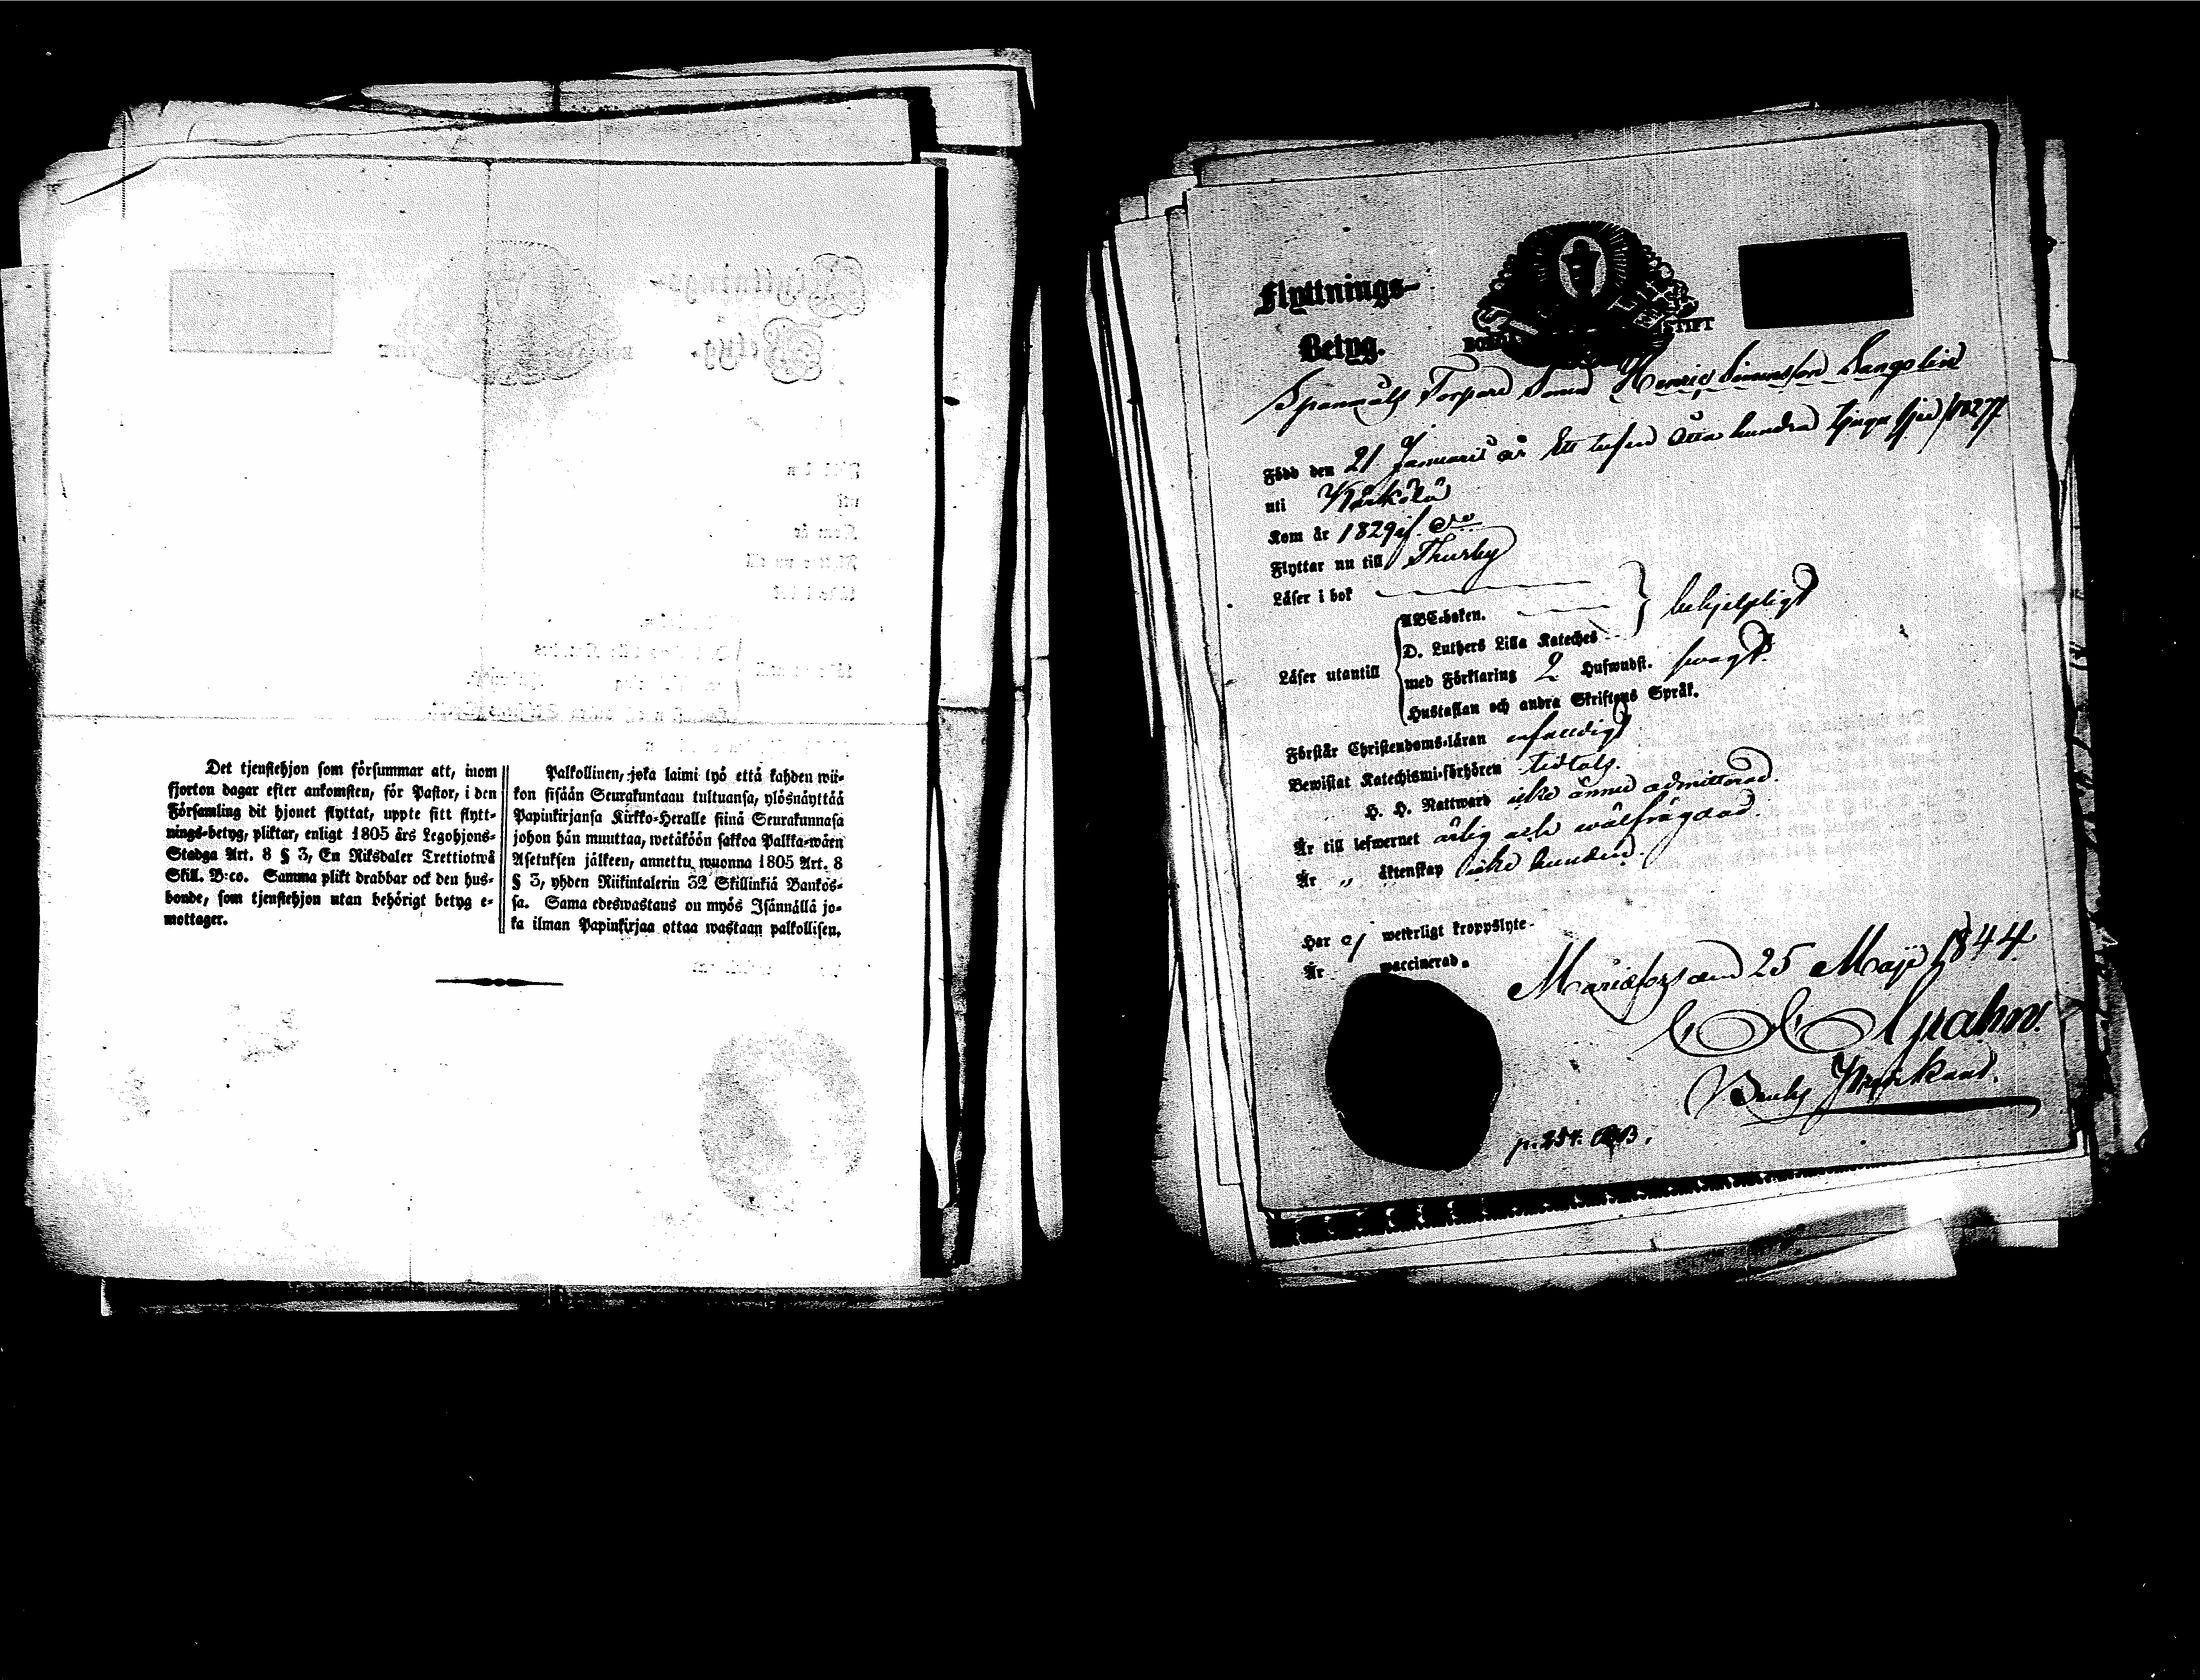 Det tjenstehjon som försummar att, inom
fjorton dagar efter ankomsten, för Pastor, i den
Församling dit hjonet flyttat, uppte sitt flytt-
nings-betyg, pliktar, enligt 1805 års Legohjons-
Stadga Art. 8 § 3, En Riksdaler Trettiotwå
Skill. B:co. Samma plikt drabbar ock den hus-
bonde, som tjenstehjon utan behörigt betyg e-
mottager.
Palkollinen, joka laimi lyö että kahden wii-
kon sisään Seurakuntaan tultuansa, ylösnäyttää
Papinkirjansa Kirkko-Heralle siinä Seurakunnasa
johon hän muuttaa, wetäköön sakkoa Palkka-wäen
Asetuksen jälkeen, annettu wuonna 1805 Art. 8
§ 3, yhden Riikintalerin 32 Skillinkiä Bankos-
sa. Sama edeswastaus on myös Isännällä jo-
ka ilman Papinkirjaa ottaa wastaan palkollisen.
Flyttnings-
Betyg.
STIFT
Torpare Sonen Henric Simonsson
Född den 21 Januarii år Ett tusend Åtta hundra tjugu sju /1827/
uti Kärkölä
Kom år 1829 if.
Flyttar nu till Thusby
Läser i bok
Läser utantill
ABC-boken.
D. Luthers Lilla Kateches
behjelpligt
med Förklaring 2 Hufwudst. swagt.
Hustaflan och andra Skriftens Språk.
Förstår Christendoms-läran enfaldigt
Bewistat Katechismi-förhören tidtals.
H. H. Nattward icke ännu admitterad.
Är till lefwernet ärlig och wälfrägdad.
Är " äktenskap icke bunden.
Har ej weterligt kroppslyte.
Är waccinerad.
Mariefors den 25 Maji 1844.
Bruks